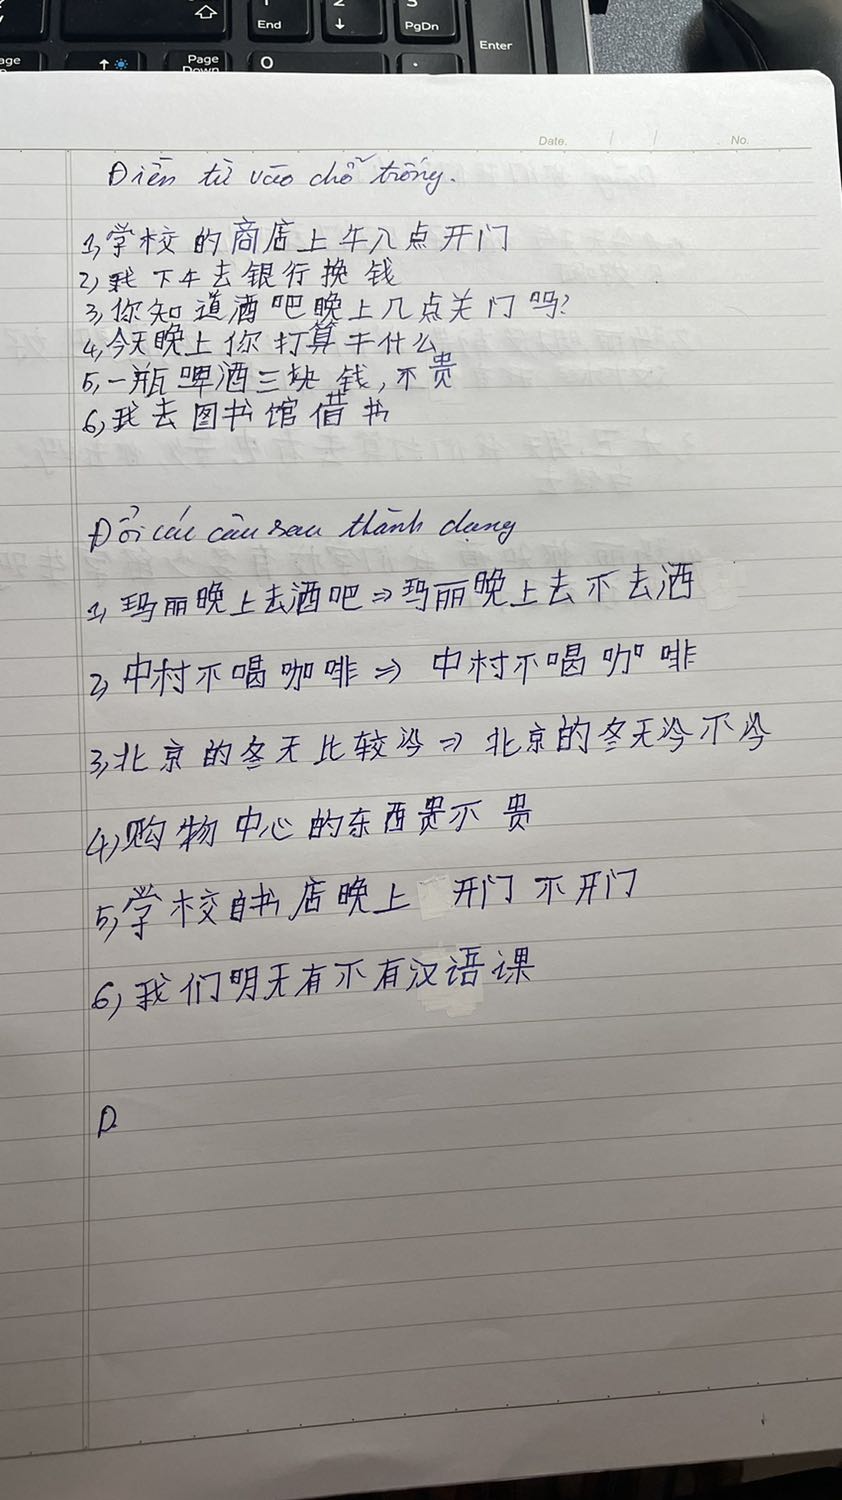 End
2
↓
3
PgDn
Enter
Page
Down
0
.
age
Date. / / No.
Điền từ vào chỗ trống.
1, 学校的商店上午八点开门
2, 我下午去银行换钱
3, 你知道酒吧晚上几点关门吗?
4, 今天晚上你打算干什么
5, 一瓶啤酒三块钱, 不贵
6, 我去图书馆借书
Đổi các câu sau thành dạng
1, 玛丽晚上去酒吧 ⇒ 玛丽晚上去不去酒
2, 中村不喝咖啡 ⇒ 中村不喝咖啡
3, 北京的冬天比较冷 ⇒ 北京的冬天冷不冷
4, 购物中心的东西贵不贵
5, 学校自书店晚上开门不开门
6, 我们明天有不有汉语课
D